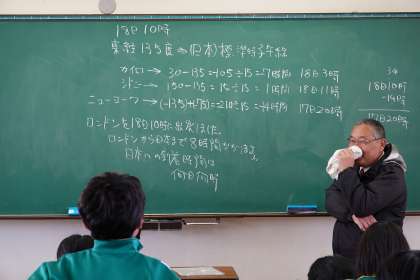 18日10時
東経135度→日本の標準時子午線
カイロ→ 30-135=105÷15=7時間 18日3時
シドニー→ 150-135=15÷15=1時間 18日11時
ニューヨーク→(-135)+(-75)=210÷15=14時間 17日20時
34
18日10時
-14時
17日20時
ロンドンを18日10時に出発した。
ロンドンから日本まで8時間かかる。
日本への到着時刻は
何日何時